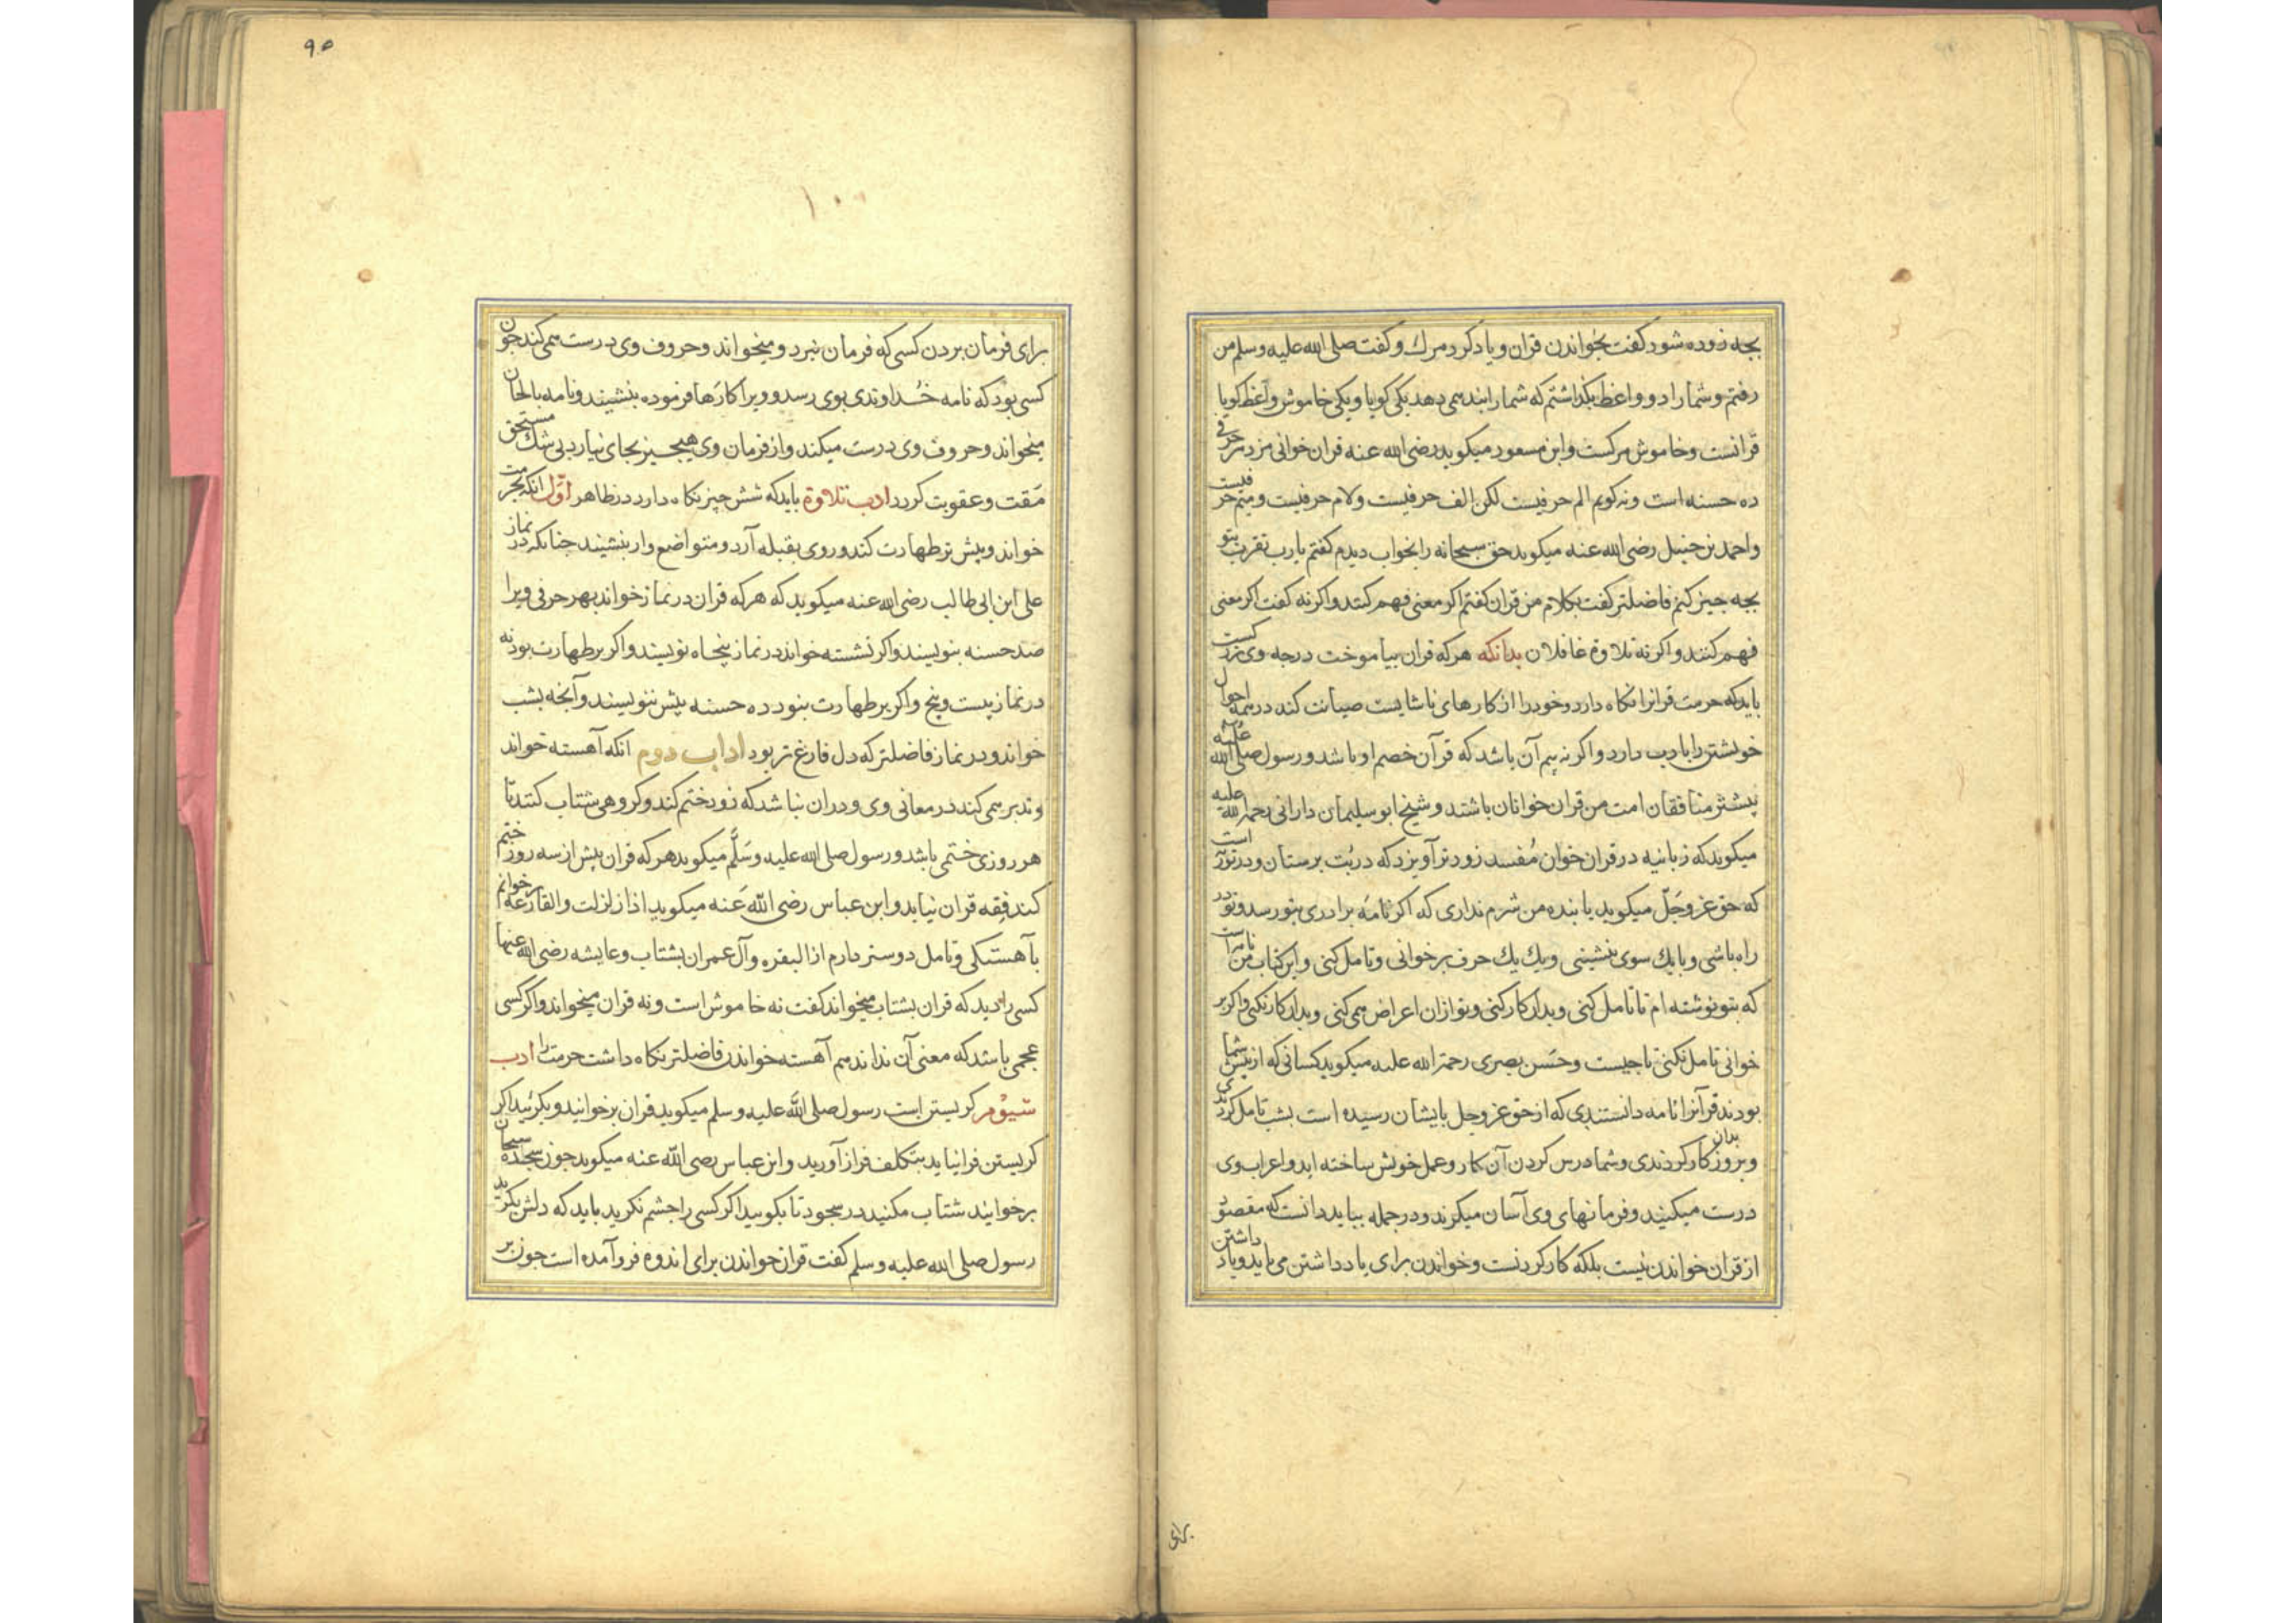 بجه زدوده شود کفت بخواندن قران و یاد کرد مرك و کفت صلی الله علیه وسلم من
رفتم و شما را دو واعظ بگذاشتم که شما را پند می دهد یکی کویا و یکی خاموش واعظ کویا
قرانست و خاموش مرکست و ابن مسعود میکوید رضی الله عنه قران خوانی مزد هر حرفی
ده حسنه است و نه کویم الم حرفیست لکن الف حرفیست ولام حرفیست و میم حرفیست
واحمد بن حنبل رضی الله عنه میکوید حق سبحانه را بخواب دیدم کفتم یارب تقرب بتو
بجه جیز کنم فاضلتر کفت بکلام من قران کفتم اکر معنی فهم کنند واکر نه کفت اکر معنی
فهم کنند و اکر نه تلاوة غافلان بدانکه هر که قران بیاموخت درجه وی بزرکست
باید که حرمت قرانرا نکاه دارد و خود را از کارهای ناشایست صیانت کند در همه احوال
خویشتن را با دب دارد و اکر نه بیم آن باشد که قرآن خصم او باشد و رسول صلی الله علیه
بیشتر منافقان امت من قران خوانان باشند و شیخ ابو سلیمان دارانی رحمة الله علیه
میکوید که زبانیه در قران خوان مُفسد زودتر آویزد که در بُت برستان و در توریة است
که حق عز وجَلّ میکوید یا بنده من شرم نداری که اکر نامه برادری بتو رسد و تو در
راه باشی و با یك سوی بنشینی و یك یك حرف بر خوانی و تامل کنی و این کتاب من نامه است
که بتو نوشته ام تا تامل کنی و بدان کار کنی و تو از ان اعراض می کنی و بدان کار نکنی و اکر بر
خوانی تامل نکنی تا جیست و حسَن بصری رحمة الله علیه میکوید کسانی که از پیش شما
بودند قرآنرا نامه دانستندی که از حق عز وجل بایشان رسیده است بشب تامل کردندی
و بروز بدان کار کردندی و شما درس کردن آن کار و عمل خویش ساخته اید و اعراب وی
درست میکنید و فرمانهای وی آسان میکرند و در جمله بباید دانست که مقصود
از قران خواندن نیست بلکه کار کردنست و خواندن برای یاد داشتن می باید و یاد داشتن
برای
۹۵
۱۰۰
برای فرمان بردن کسی که فرمان نبرد و میخواند و حروف وی درست همی کند جون
کسی بود که نامه خُداوندی بوی رسد و ویرا کارها فرموده بنشیند و نامه بالحان
میخواند و حروف وی درست میکند و از فرمان وی هیج جیز بجای نیارد بی شك مستحق
مَقت و عقوبت کردد ادب تلاوة باید که شش جیز نکاه دارد در ظاهر اوّل انکه بحرمت
خواند و پیش تر طهارت کند و روی بقبله آرد و متواضع وار بنشیند جنانکه در نماز
علی ابن ابی طالب رضی الله عنه میکوید که هر که قران در نماز خواند بهر حرفی ویرا
صد حسنه بنویسند و اکر نشسته خواند در نماز پنجاه نویسند و اکر بر طهارت بود نه
در نماز بیست و پنج و اکر بر طهارت بنود ده حسنه بیش ننویسند و آنجه بشب
خواند و در نماز فاضلتر که دل فارغ تر بود اداب دوم انکه آهسته خواند
و تدبر همی کند در معانی وی و دران نباشد که زود ختم کند و کروهی شتاب کنند تا
هر روزی ختمی باشد و رسول صلی الله علیه وسَلَّم میکوید هر که قران پیش از سه روز ختم
کند فقه قران نیابد و ابن عباس رضی الله عَنه میکوید اذا زلزلت والقارعة بر خوانم
بآهستکی و تامل دوستر دارم از البقره وآل عمران بشتاب و عایشه رضی الله عنها
کسی را دید که قران بشتاب میخواند کفت نه خاموش است و نه قران میخواند و اکر کسی
عجمی باشد که معنی آن نداند هم آهسته خواندن فاضلتر نکاه داشت حرمت را ادب
سیوّم کریستن است رسول صلی الله علیه وسلم میکوید قران بر خوانید و بکرئید اکر
کریستن فرانیاید بتکلف فراز آورید و ابن عباس رضی الله عنه میکوید جون سجده سبحان
بر خوانید شتاب مکنید در سجود تا بکویید اکر کسی را جشم نکرید باید که دلش بکرید
رسول صلی الله علیه وسلم کفت قران خواندن برای اندوه فرو آمده است جون بر